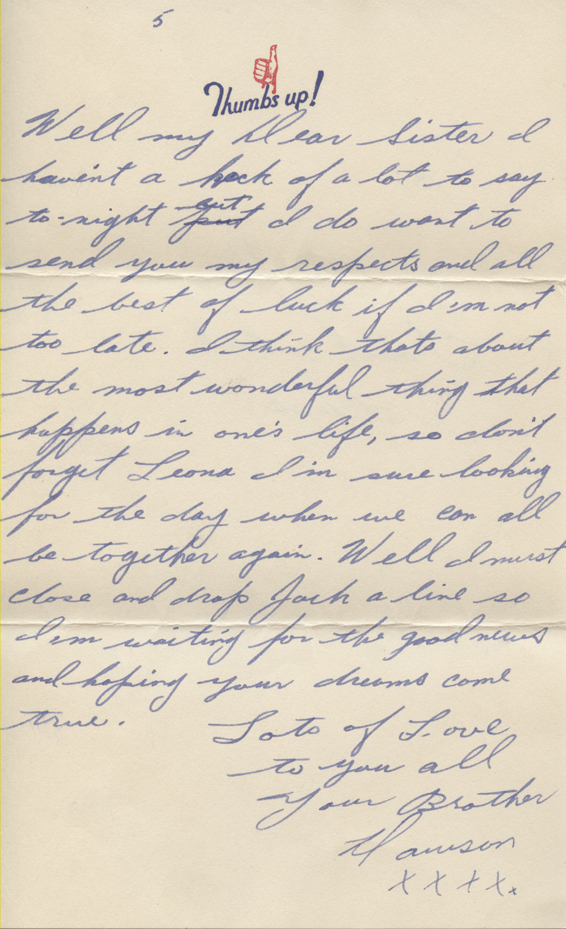 5
Thumbs up!
Well my Dear Sister I
havent a heck of a lot to say
to-night but I do want to
send you my respects and all
the best of luck if I'm not
too late. I think thats about
the most wonderful thing that
happens in one's life, so don't
forget Leona I'm sure looking
for the day when we can all
be together again. Well I must
close and drop Jack a line so
I'm waiting for the good news
and hoping your dreams come
true.
Lots of Love
to you all
Your Brother
Dawson
X X X X.